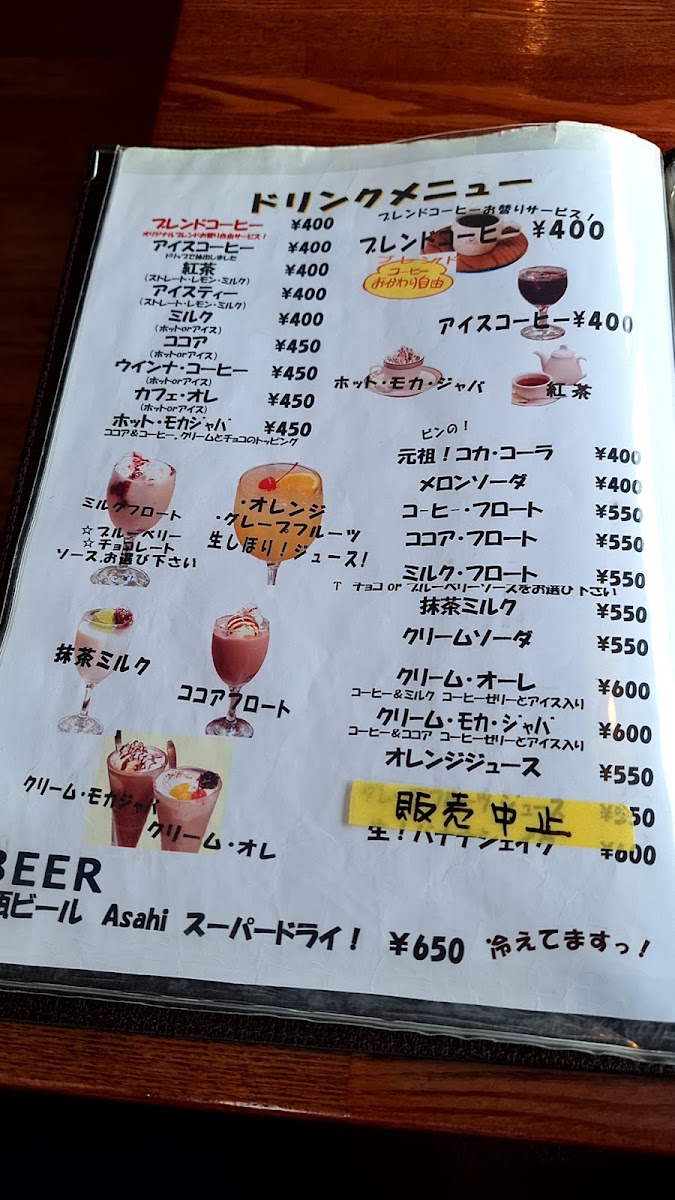 ドリンクメニュー
ブレンドコーヒー ¥400
オリジナルブレンドお替り自由サービス！
アイスコーヒー ¥400
ドリップで抽出しました
紅茶 ¥400
(ストレート・レモン・ミルク)
アイスティー ¥400
(ストレート・レモン・ミルク)
ミルク ¥400
(ホットorアイス)
ココア ¥450
(ホットorアイス)
ウインナ・コーヒー ¥450
(ホットorアイス)
カフェ・オレ ¥450
(ホットorアイス)
ホット・モカジャバ ¥450
ココア&コーヒー，クリームとチョコのトッピング
ブレンドコーヒーお替りサービス！
ブレンドコーヒー ¥400
ブレンド
コーヒー
おかわり自由
アイスコーヒー¥400
ホット・モカ・ジャバ
紅茶
ミルクフロート
☆ブルーベリー
☆チョコレート
ソース，お選び下さい
・オレンジ
・グレープフルーツ
生しぼり！ジュース！
抹茶ミルク
ココアフロート
クリーム・モカジャバ
クリーム・オレ
ビンの！
元祖！コカ・コーラ ¥400
メロンソーダ ¥400
コーヒー・フロート ¥550
ココア・フロート ¥550
ミルク・フロート ¥550
チョコ or ブルーベリーソースをお選び下さい
抹茶ミルク ¥550
クリームソーダ ¥550
クリーム・オーレ ¥600
コーヒー&ミルク コーヒーゼリーとアイス入り
クリーム・モカ・ジャバ ¥600
コーヒー&ココア コーヒーゼリーとアイス入り
オレンジジュース ¥550
販売中止
¥600
BEER
ビール Asahi スーパードライ！ ¥650 冷えてますっ！